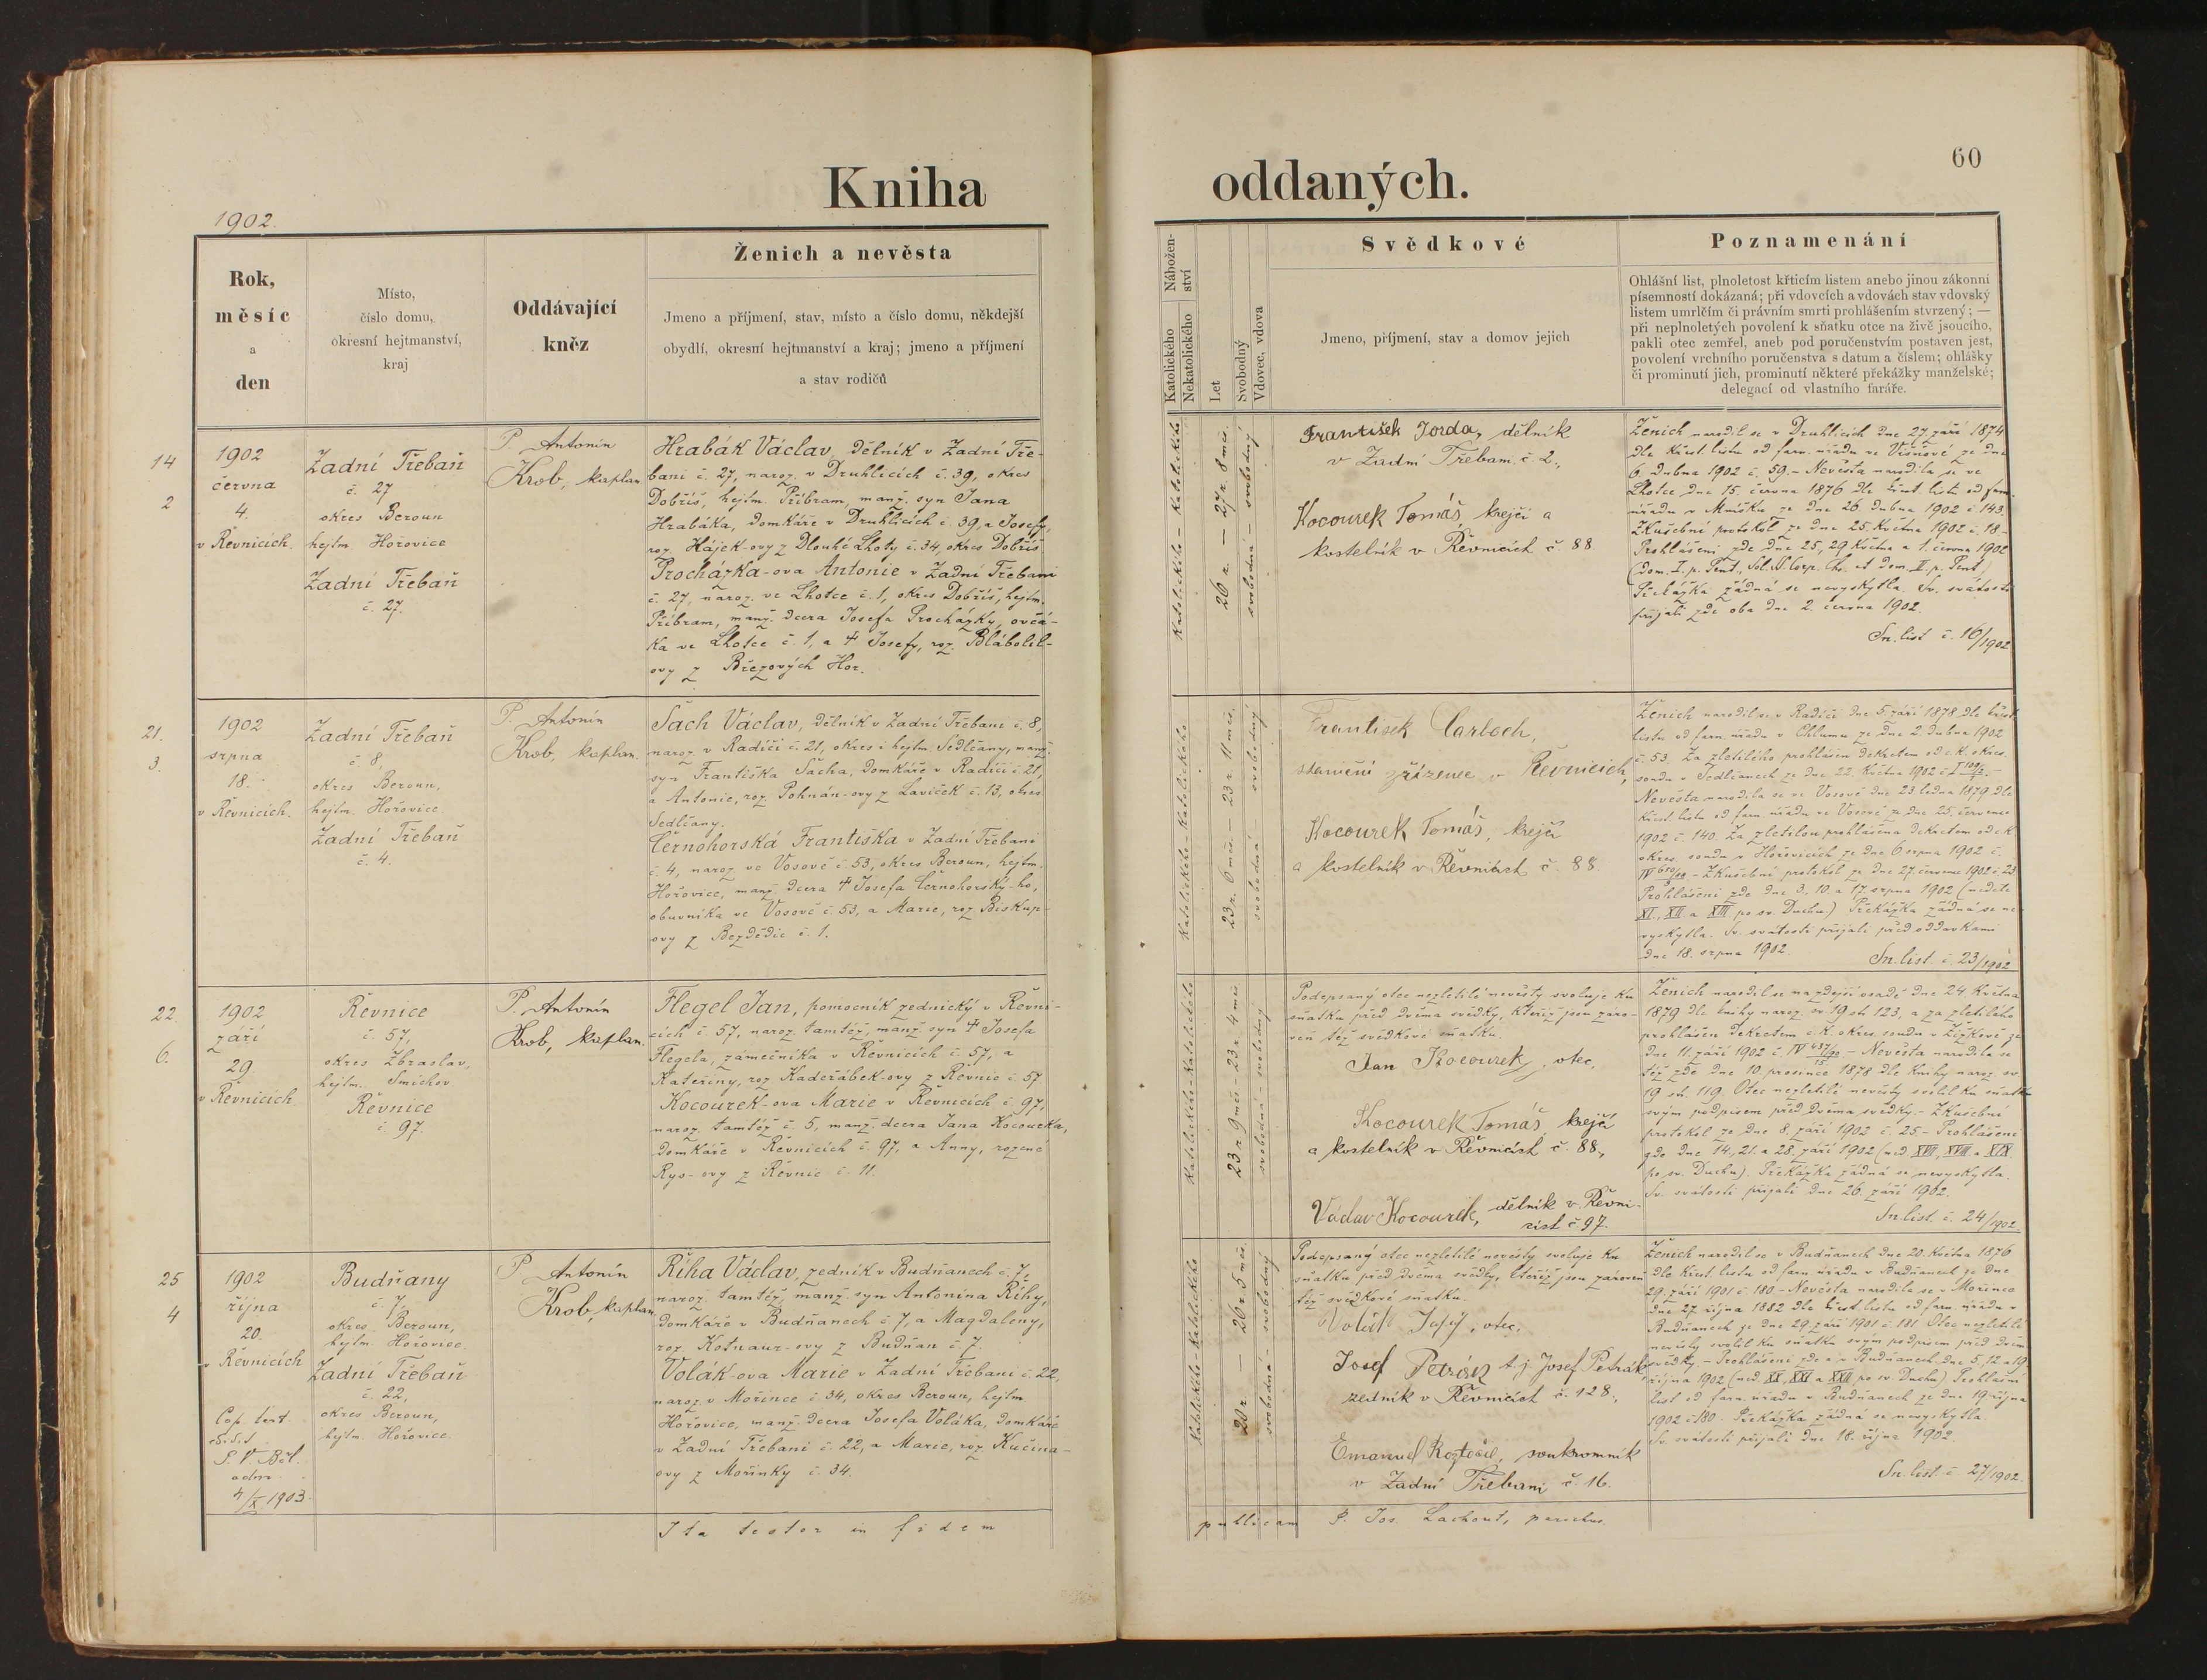 Kniha
oddaných.
60
1902.
Rok,
měsíc
a
den
Místo,
číslo domu,
okresní hejtmanství,
kraj
Oddávající
kněz
Ženich a nevěsta
Jmeno a příjmení, stav, místo a číslo domu, někdejší
obydlí, okresní hejtmanství a kraj; jmeno a příjmení
a stav rodičů
Katolického
Nekatolického
Nábožen-
ství
Let
Svobodný
Vdovec, vdova
Svědkové
Jmeno, příjmení, stav a domov jejich
Poznamenání
Ohlášní list, plnoletost křticím listem anebo jinou zákonní
písemností dokázaná; při vdovcích a vdovách stav vdovský
listem umrlčím či právním smrti prohlášením stvrzený; —
při neplnoletých povolení k sňatku otce na živě jsoucího,
pakli otec zemřel, aneb pod poručenstvím postaven jest,
povolení vrchního poručenstva s datum a číslem; ohlášky
či prominutí jich, prominutí některé překážky manželské;
delegací od vlastního faráře.
14
2
1902
června
4.
v Řevnicích.
Zadní Třebaň
č. 27
okres Beroun
hejtm. Hořovice
Zadní Třebaň
č. 27.
P. Antonín
Krob, kaplan.
Hrabák Václav, dělník v Zadní Tře-
bani č. 27, naroz. v Druhlicích č. 39, okres
Dobříš, hejtm. Příbram, manž. syn Jana
Hrabáka, domkáře v Druhlicích č. 39, a Josefy,
roz. Hájek-ovy z Dlouhé Lhoty č. 34, okres Dobříš
Procházka-ova Antonie v Zadní Třebani
č. 27, naroz. ve Lhotce č. 1, okres Dobříš, hejtm.
Příbram, manž. dcera Josefa Procházky, ovčá-
ka ve Lhotce č. 1, a † Josefy, roz. Blábolil-
ovy z Březových Hor.
Katolického – Katolického
26 r. — 27 r. 8 měs.
svobodná — svobodný
František Jorda, dělník
v Zadní Třebani č. 2.,
Kocourek Tomáš, krejčí a
kostelník v Řevnicích č. 88
Ženich narodil se v Druhlicích dne 27. září 1874
dle křest. listu od farn. úřadu ve Višňové ze dne
6. dubna 1902 č. 59. – Nevěsta narodila se ve
Lhotce dne 15. června 1876 dle křest. listu od farn.
úřadu v Mníšku ze dne 26. dubna 1902 č. 143.
Zkušební protokol ze dne 25. května 1902 č. 18. –
Prohlášeni zde dne 25., 29. května a 1. června 1902
(dom. I. p. Pent., Sol. S. Corp. Chr. et dom. II. p. Pent.)
Překážka žádná se nevyskytla. Sv. svátosti
přijali zde oba dne 2. června 1902.
Sn. list č. 16/1902
21.
3.
1902
srpna
18.
v Řevnicích.
Zadní Třebaň
č. 8,
okres Beroun,
hejtm. Hořovice
Zadní Třebaň
č. 4.
P. Antonín
Krob, kaplan.
Šach Václav, dělník v Zadní Třebani č. 8,
naroz. v Radíči č. 21, okres i hejtm. Sedlčany, manž.
syn Františka Šacha, domkáře v Radíči č. 21,
a Antonie, roz. Pohnán-ovy z Laviček č. 13, okres
Sedlčany.
Černohorská Františka v Zadní Třebani
č. 4, naroz. ve Vosově č. 53, okres Beroun, hejtm.
Hořovice, manž. dcera † Josefa Černohorský-ho,
obuvníka ve Vosově č. 53, a Marie, roz. Biskup-
ovy z Bezdědic č. 1.
Katolického – Katolického
23 r. 6 měs. – 23 r. 11 měs.
svobodná – svobodný
František Carboch,
staniční zřízenec v Řevnicích,
Kocourek Tomáš, krejčí
a kostelník v Řevnicích č. 88.
Ženich narodil se v Radíči dne 5. září 1878 dle křest.
listu od farn. úřadu v Chlumu ze dne 2. dubna 1902
č. 53. Za zletilého prohlášen dekretem od c. k. okres.
soudu v Sedlčanech ze dne 22. května 1902
Nevěsta narodila se ve Vosově dne 23. ledna 1879 dle
křest. listu od farn. úřadu ve Vosově ze dne 25. července
1902 č. 140. Za zletilou prohlášena dekretem od c. k.
okres. soudu v Hořovicích ze dne 6. srpna 1902 č.
Zkušební protokol ze dne 27. července 1902 č. 23
Prohlášeni zde dne 3., 10. a 17. srpna 1902 (neděle
XI., XII. a XIII. po sv. Duchu.) Překážka žádná se ne-
vyskytla. Sv. svátosti přijali před oddavkami
dne 18. srpna 1902.
Sn. list. č. 23/1902
22.
6.
1902
září
29.
v Řevnicích
Řevnice
č. 57,
okres Zbraslav,
hejtm. Smíchov
Řevnice
č. 97.
P. Antonín
Krob, kaplan.
Flegel Jan, pomocník zednický v Řevni-
cích č. 57, naroz. tamtéž, manž. syn † Josefa
Flegela, zámečníka v Řevnicích č. 57, a
Kateřiny, roz. Kadeřábek-ovy z Řevnic č. 57.
Kocourek-ova Marie v Řevnicích č. 97,
naroz. tamtéž č. 5, manž. dcera Jana Kocourka,
domkáře v Řevnicích č. 97, a Anny, rozené
Rys-ovy z Řevnic č. 11.
Katolického – Katolického
23 r. 9 měs. – 23 r. 4 měs
svobodná – svobodný
Podepsaný otec nezletilé nevěsty svoluje ku
sňatku před dvěma svědky, kteříž jsou záro-
veň též svědkové sňatku.
Jan Kocourek, otec,
Kocourek Tomáš, krejčí
a kostelník v Řevnicích č. 88.,
Václav Kocourek, dělník v Řevni-
cích č. 97.
Ženich narodil se na zdejší osadě dne 24. května
1879 dle knihy naroz. sv. 19 str. 123, a za zletilého
prohlášen dekretem c. k. okres. soudu v Žižkově ze
dne 11. září 1902 – Nevěsta narodila se
též zde dne 10. prosince 1878 dle knihy naroz. sv.
19 str. 119. Otec nezletilé nevěsty svolil ku sňatku
svým podpisem před dvěma svědky. – Zkušební
protokol ze dne 8. září 1902 č. 25. – Prohlášeni
zde dne 14., 21. a 28. září 1902 (ned. XVII., XVIII. a XIX.
po sv. Duchu). Překážka žádná se nevyskytla.
Sv. svátosti přijali dne 26. září 1902.
Sn. list. č. 24/1902.
25
4
1902
října
20.
v Řevnicích
Cop. test.
edidi
adm.
4/X 1903.
Budňany
č. 7,
okres Beroun,
hejtm. Hořovice.
Zadní Třebaň
č. 22,
okres Beroun,
hejtm. Hořovice.
P. Antonín
Krob, kaplan.
Říha Václav, zedník v Budňanech č. 7,
naroz. tamtéž, manž. syn Antonína Říhy,
domkáře v Budňanech č. 7, a Magdaleny,
roz. Kotnaur-ovy z Budňan č. 7.
Volák-ova Marie v Zadní Třebani č. 22,
naroz. v Mořince č. 34, okres Beroun, hejtm.
Hořovice, manž. dcera Josefa Voláka, domkáře
v Zadní Třebani č. 22, a Marie, roz. Kučina-
ovy z Mořinky č. 34.
Katolického – Katolického
20 r. — 26 r. 5 měs.
svobodná – svobodný
Podepsaný otec nezletilé nevěsty svoluje ku
sňatku před dvěma svědky, kteříž jsou zároveň
též svědkové sňatku.
Volák Josef, otec.
Josef Petrák t. j. Josef Petrák,
zedník v Řevnicích č. 128.,
Emanuel Roztočil, soukromník
v Zadní Třebani č. 16.
Ženich narodil se v Budňanech dne 20. května 1876
dle křest. listu od farn. úřadu v Budňanech ze dne
29. září 1901 č. 180. – Nevěsta narodila se v Mořince
dne 27. října 1882 dle křest. listu od farn. úřadu v
Budňanech ze dne 29. září 1901 č. 181. Otec nezletilé
nevěsty svolil ku sňatku svým podpisem před dvěma
svědky. – Prohlášeni zde a v Budňanech dne 5., 12. a 19.
října 1902 (ned. XX., XXI. a XXII. po sv. Duchu) Prohlášní
list od farn. úřadu v Budňanech ze dne 19. října
1902 č. 180. Překážka žádná se nevyskytla.
Sv. svátosti přijali dne 18. října 1902.
Sn. list. č. 27/1902.
Ita testor in fidem
publicam P. Jos. Lachout, parochus.